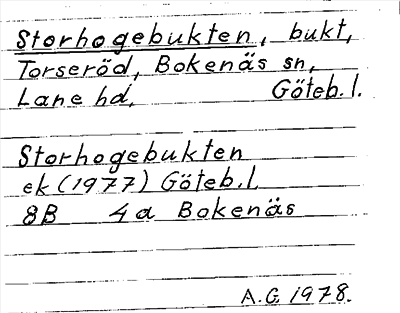 Storhogebukten, bukt,
Torseröd, Bokenäs sn,
Lane hd, Göteb. l.
Storhogebukten
ek (1977) Göteb. l.
8B 4a Bokenäs
A.G. 1978.